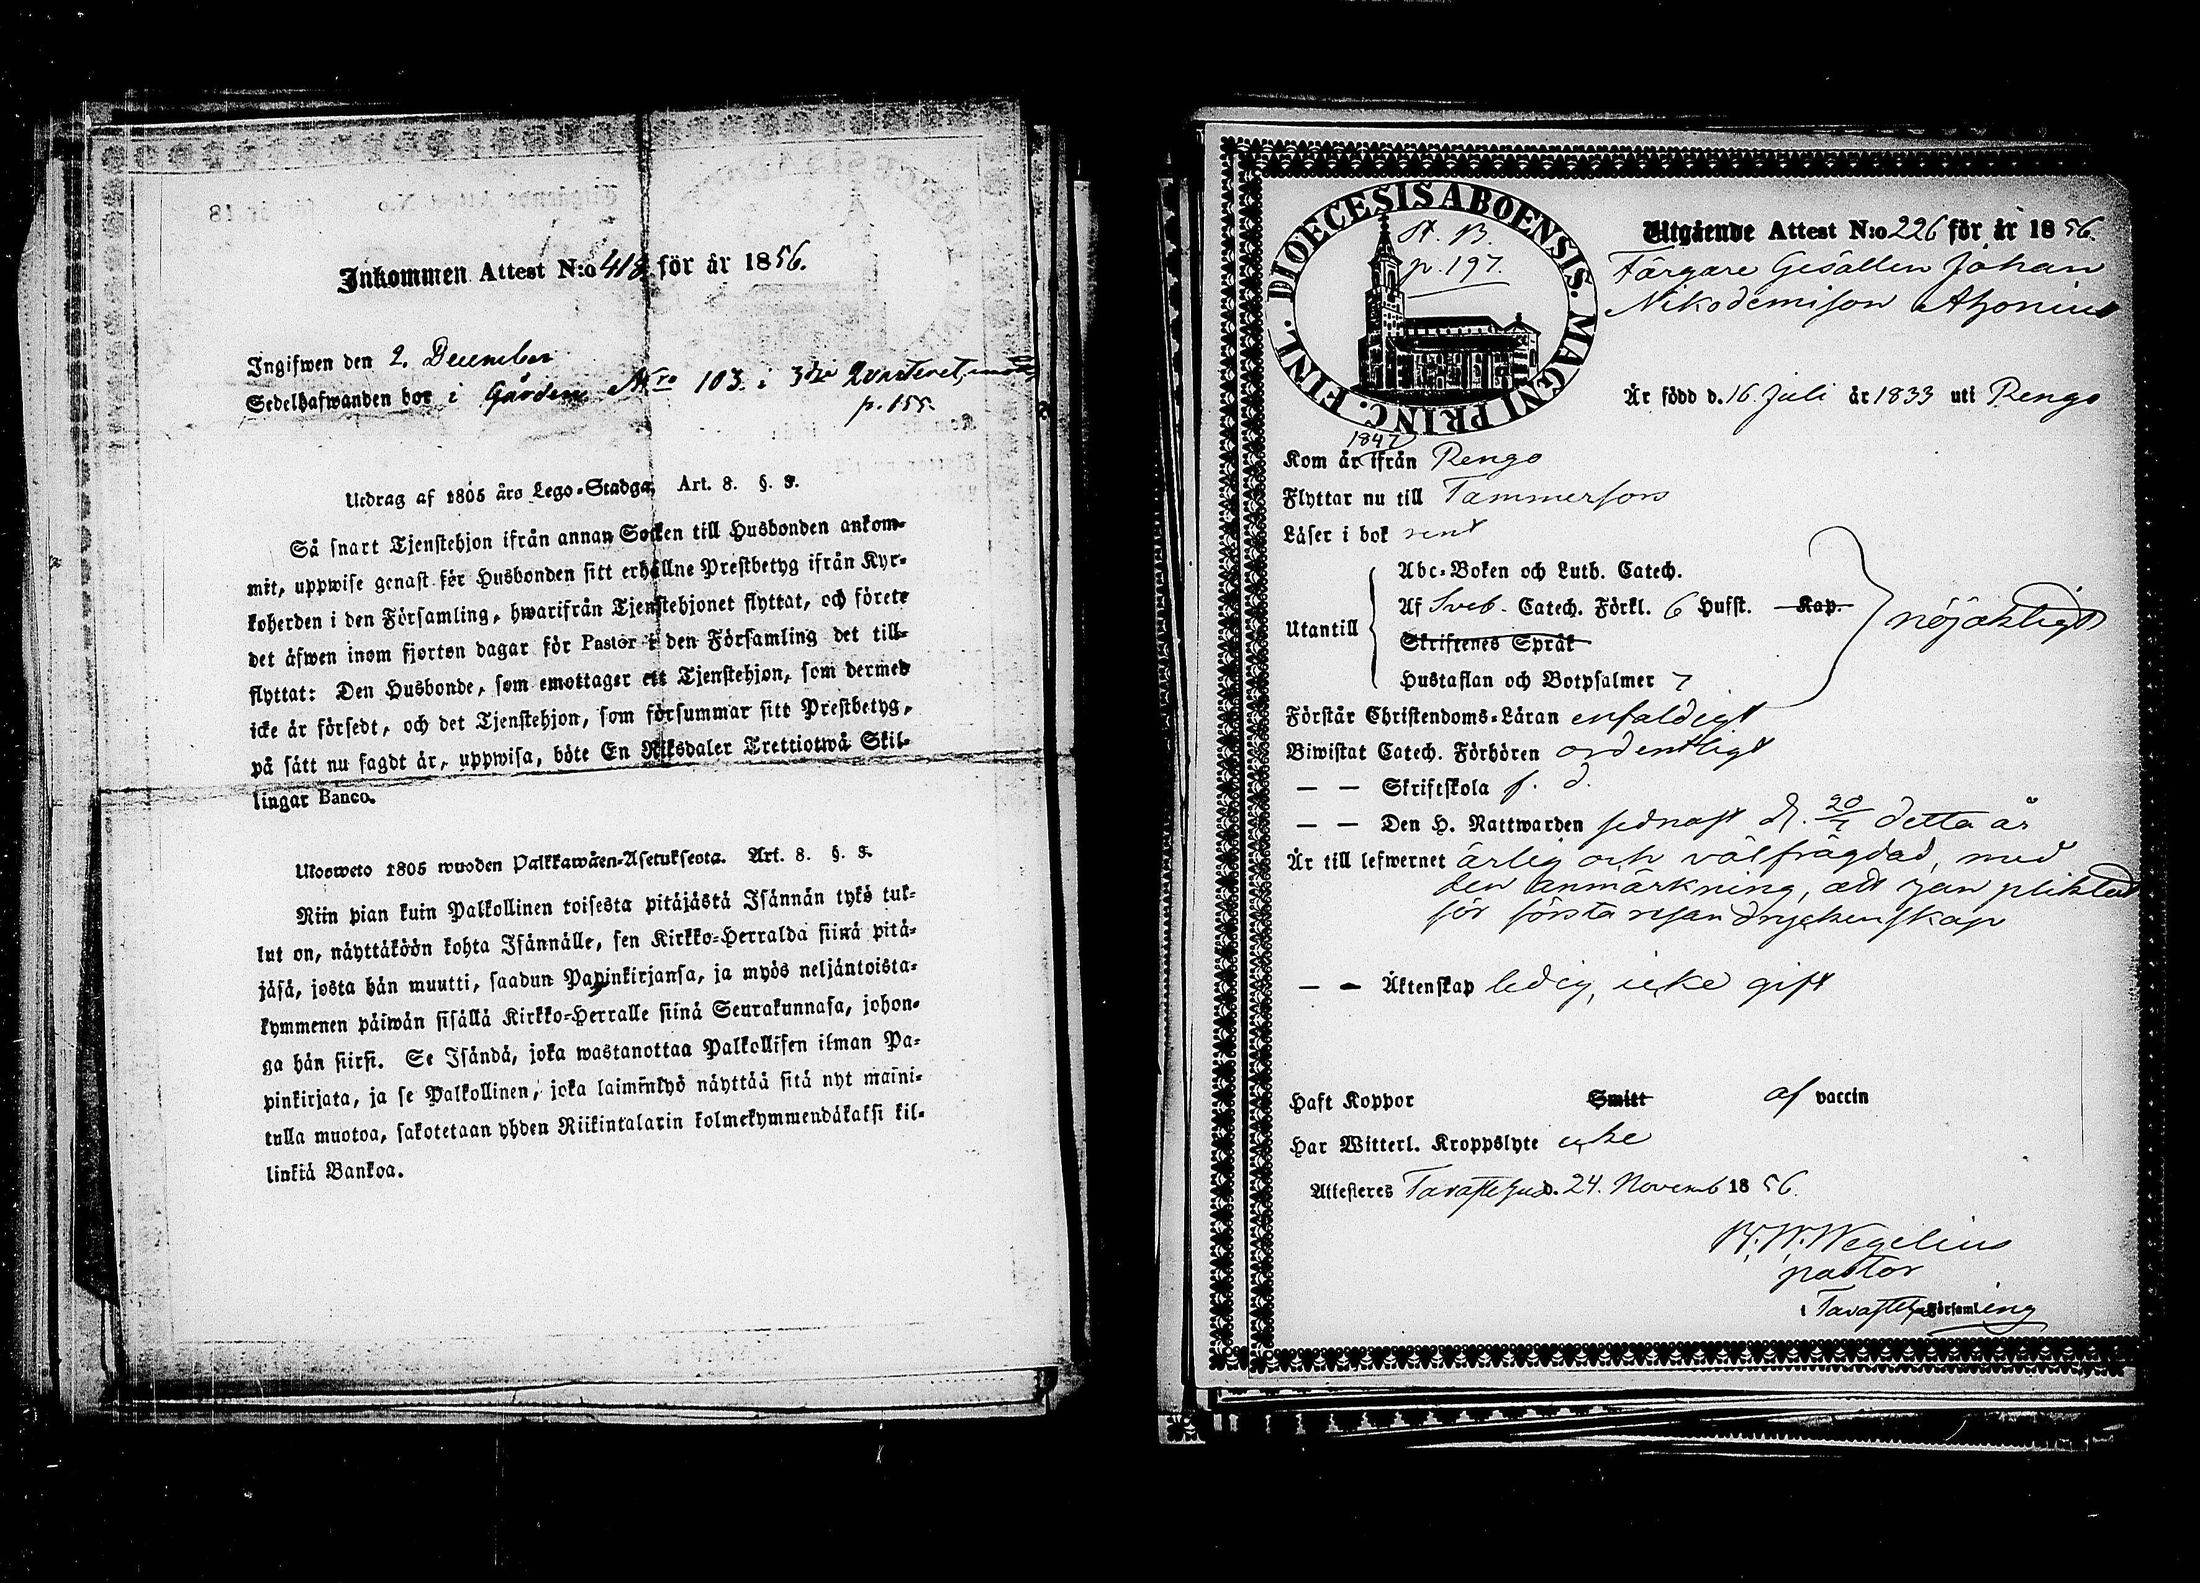 Inkommen Attest N:o 418 för år 1856.
Ingifwen den 2. December
Sedelhafwanden bor i Gården Nro 103. i 3dje Qvarteret,
p. 155.
Utdrag af 1805 års Lego-Stadga, Art. 8. §. 3.
Så snart Tjenstehjon ifrån annan Socken till Husbonden ankom-
mit, uppwise genast för Husbonden sitt erhållne Prestbetyg ifrån Kyr-
koherden i den Församling, hwarifrån Tjenstehjonet flyttat, och förete
det äfwen inom fjorton dagar för Pastor i den Församling det till-
flyttat: Den Husbonde, som emottager ett Tjenstehjon, som dermed
icke är försedt, och det Tjenstehjon, som försummar sitt Prestbetyg,
på sätt nu sagdt är, uppwisa, böte En Riksdaler Trettiotwå Skil-
lingar Banco.
Ulosweto 1805 wuoden Palkkawäen-Asetuksesta. Art. 8. §. 3.
Niin pian kuin Palkollinen toisesta pitäjästä Isännän tykö tul-
lut on, näyttäköön kohta Isännälle, sen Kirkko-Herralda siinä pitä-
jäsä, josta hän muutti, saadun Papinkirjansa, ja myös neljäntoista-
kymmenen päiwän sisällä Kirkko-Herralle siinä Seurakunnasa, johon-
ga hän siirsi. Se Isändä, joka wastanottaa Palkollisen ilman Pa-
pinkirjata, ja se Palkollinen, joka laiminlyö näyttää sitä nyt maini-
tulla muotoa, sakotetaan yhden Riikintalarin kolmekymmendäkaksi kil-
linkiä Bankoa.
DIOECESIS ABOENSIS. MAGNI PRINC. FINL.
St. B.
p. 197.
Utgående Attest N:o 226 för år 1856.
Färgare Gesällen Johan
Nikodemisson Ahonius
Är född d. 16 Juli år 1833 uti Rengo
1847
Kom år ifrån Rengo
Flyttar nu till Tammerfors
Läser i bok rent
Abc-Boken och Luth. Catech.
Af Sveb. Catech. Förkl. 6 Hufst. Kap.
Utantill
Skriftenes Språk
nöjaktigt
Hustaflan och Botpsalmer 7
Förstår Christendoms-Läran enfaldigt
Biwistat Catech. Förhören ordentligt
— — Skriftskola f. d.
— — Den H. Nattwarden sednast d. 20/7 detta år
Är till lefwernet ärlig och välfrägdad, med
den anmärkning, att han pliktat
för första resan dryckenskap
— — Äktenskap ledig, icke gift
Haft Koppor Smitt af vaccin
Har Witterl. Kroppslyte icke
Attesteres Tavastehus d. 24. Novemb 1856.
Wegelius
pastor
i Tavasteh. Församling